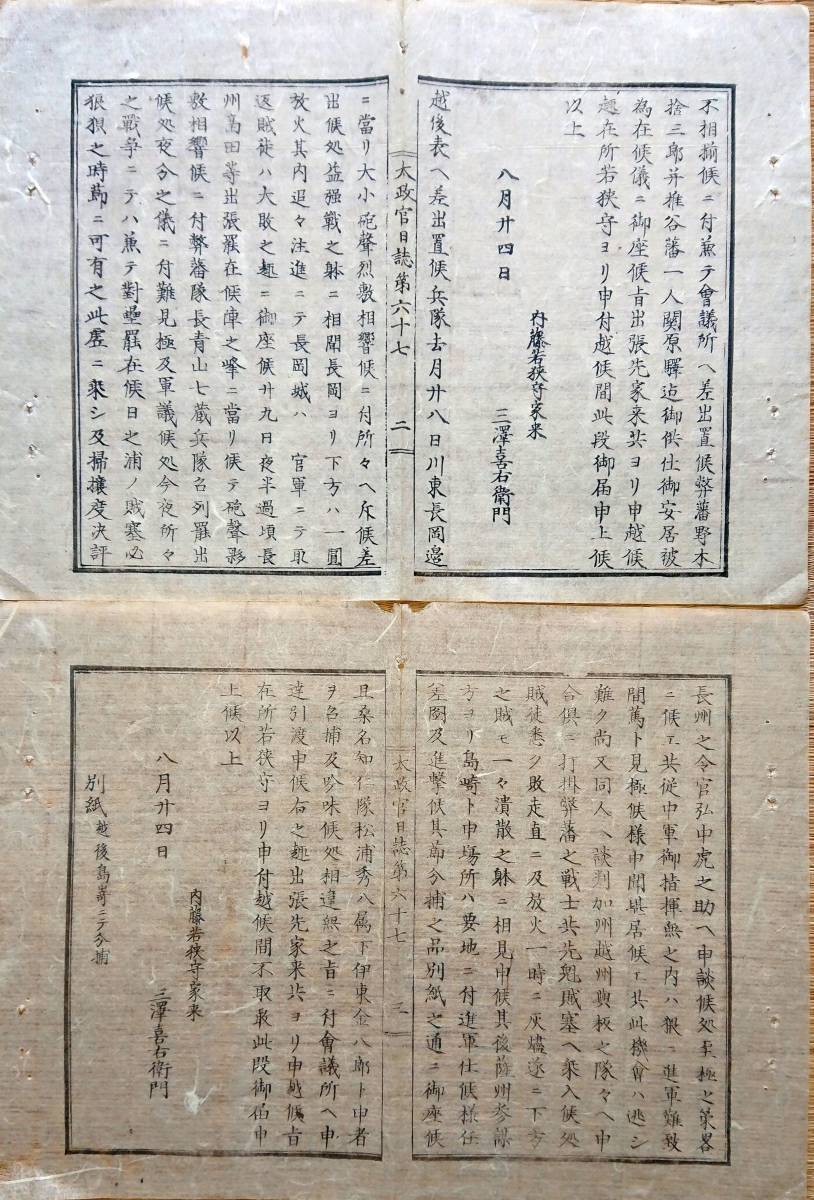 不相揃候ニ付兼テ會議所ヘ差出置候弊藩野本
捨三郎并推谷藩一人関原驛迠御供仕御安居被
為在候儀ニ御座候旨出張先家来共ヨリ申越候
趣在所若狭守ヨリ申付越候間此段御届申上候
以上
八月廿四日
内藤若狭守家来
三澤喜右衛門
越後表ヘ差出置候兵隊去月廿八日川東長岡邉
太政官日誌第六十七
二
ニ當リ大小砲聲烈敷相響候ニ付所々ヘ斥候差
出候処益强戦之躰ニ相聞長岡ヨリ下方ハ一圓
放火其内追々注進ニテ長岡城ハ 官軍ニテ取
返賊徒ハ大敗之趣ニ御座候廿九日夜半過頃長
州高田等出張罷在候陣之峰ニ當リ候テ砲聲夥
敷相響候ニ付弊藩隊長青山七蔵兵隊召列罷出
候処夜分之儀ニ付難見極及軍議候処今夜所々
之戦争ニテハ兼テ對壘罷在候日之浦ノ賊塞必
狼狽之時節ニ可有之此虚ニ乗シ及掃攘度决評
長州之令官弘中虎之助ヘ申談候処至極之策畧
ニ候ヱ共従中軍御指揮無之内ハ猥ニ進軍難致
間篤ト見極候様申聞堪居候ヱ共此機會ハ逃シ
難ク尚又同人ヘ談判加州越州與板之隊々ヘ申
合倶ニ打掛弊藩之戦士共先魁賊塞ヘ乗入候処
賊徒悉ク敗走直ニ及放火一時ニ灰燼遂ニ下方
之賊モ一々潰散之躰ニ相見申候其後薩州参謀
方ヨリ島崎ト申場所ハ要地ニ付進軍仕候様任
差圖及進撃候其節分捕之品別紙之通ニ御座候
太政官日誌第六十七
三
且桑名知仁隊松浦秀八属下伊東金八郎ト申者
ヲ召捕及吟味候処相違無之旨ニ付會議所ヘ申
達引渡申候右之趣出張先家来共ヨリ申越候旨
在所若狭守ヨリ申付越候間不取敢此段御届申
上候以上
八月廿四日
内藤若狭守家来
三澤喜右衛門
別紙 越後島嵜ニテ分捕